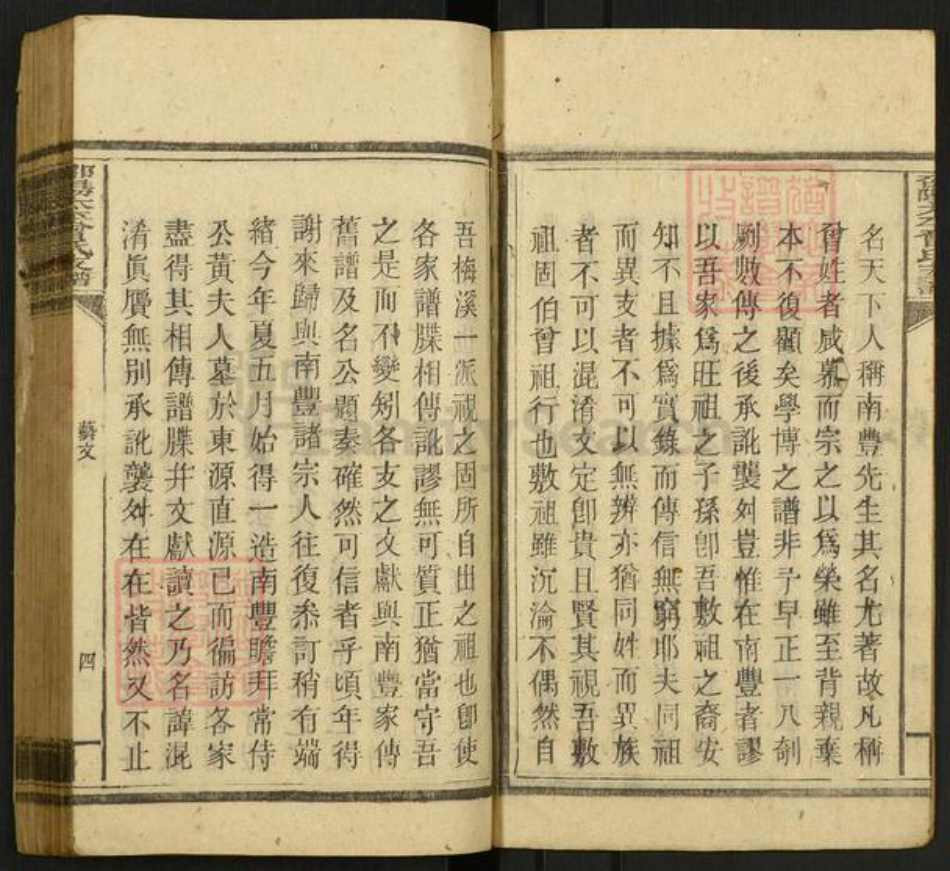 名天下人稱南豐先生其名尤著故凡稱
曾姓者咸慕而宗之以爲榮雖至背親棄
本不復顧矣學博之譜非予早正一八刳
劂數傳之後承訛襲舛豈惟在南豐者謬
以吾家爲旺祖之子孫卽吾敷祖之裔安
知不且據爲實錄而傳信無窮耶夫同祖
而異支者不可以無辨亦猶同姓而異族
者不可以混淆文定卽貴且賢其視吾敷
祖固伯曾祖行也敷祖雖沉淪不偶然自
吾梅溪一派視之固所自出之祖也卽使
各家譜牒相傳訛謬無可質正猶當守吾
之是而不變矧各支之文獻與南豐家傳
舊譜及名公顯奏確然可信者乎頃年得
謝來歸與南豐諸宗人往復叅訂稍有端
緒今年夏五月始得一造南豐瞻拜常侍
公黃夫人墓於東源直源已而徧訪各家
盡得其相傳譜牒幷文獻讀之乃名諱混
淆眞贋無別承訛襲舛在在皆然又不止
藝文
四